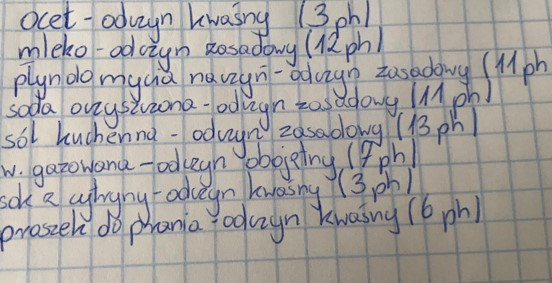 ocet - odczyn kwaśny (3 ph)
mleko - odczyn zasadowy (12 ph)
płyn do mycia naczyń - odczyn zasadowy (11 ph
soda oczyszczona - odczyn zasadowy (11 ph)
sól kuchenna - odczyn zasadowy (13 ph)
w. gazowana - odczyn obojętny (7 ph)
sok z cytryny - odczyn kwaśny (3 ph)
proszek do prania - odczyn kwaśny (6 ph)